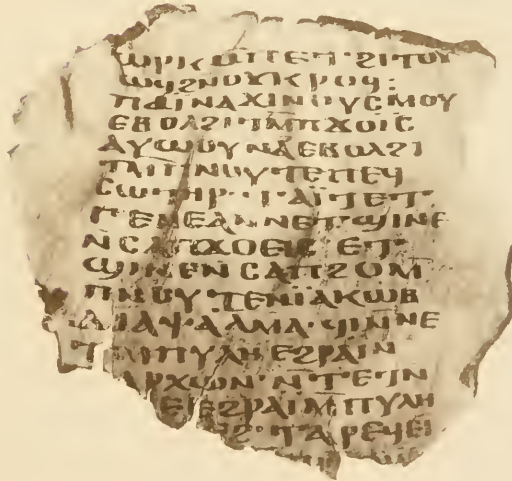 ⲱⲣⲕ ⲙⲡⲉⲧϩⲓⲧⲟⲩ
ⲱϥϩⲛⲟⲩⲕⲣⲟϥ:
ⲡⲁⲓⲛⲁϫⲓⲛⲟⲩⲥⲙⲟⲩ
ⲉⲃⲟⲗϩⲓⲧⲙⲡϫⲟⲓⲥ
ⲁⲩⲱⲟⲩⲛⲁⲉⲃⲟⲗϩⲓ
ⲧⲙⲡⲛⲟⲩⲧⲉⲡⲉϥ
ⲥⲱⲧⲏⲣ·ⲧⲁⲓⲧⲉⲧ
ⲅⲉⲛⲉⲁⲛⲛⲉⲧϣⲓⲛⲉ
ⲛⲥⲁⲡϫⲟⲉⲓⲥ ⲉⲧ
ϣⲓⲛⲉⲛⲥⲁⲡϩⲟⲙ
ⲡⲛⲟⲩⲧⲉⲛⲓⲁⲕⲱⲃ
ⲇⲓⲁⲯⲁⲗⲙⲁ·ϥⲓⲛⲛⲉ
ⲧⲙⲡⲩⲗⲏⲉϩⲣⲁⲓⲛ
ⲁⲣⲭⲱⲛⲛⲧⲉⲧⲛ
ⲉⲓⲉϩⲣⲁⲓⲙⲡⲩⲗⲏ
ⲧⲁⲣⲉϥⲉⲓ